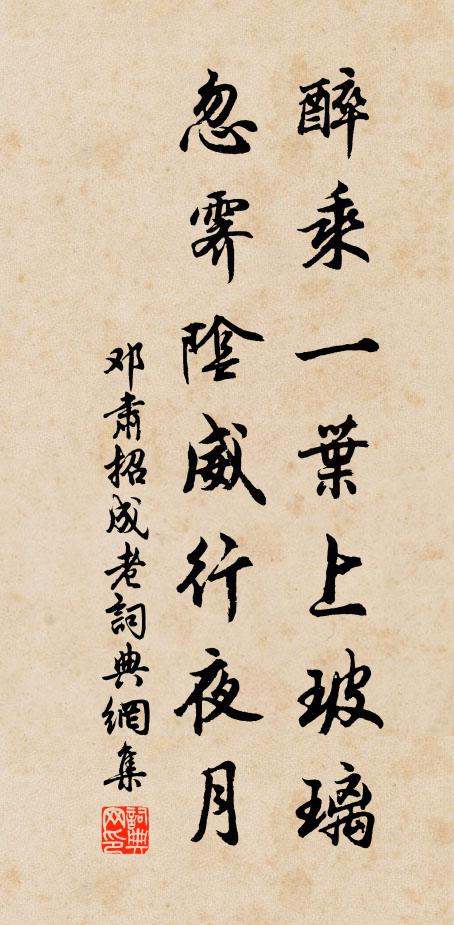 醉乘一葉上玻璃
忽霽陰威行夜月
邓肅招成老詞典網集
詞典网印